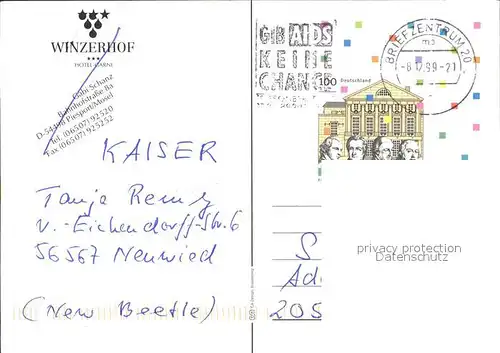 WINZERHOF
HOTEL GARNI
Schanz
Bahnhofstraße 8a
D-54498 Piesport (Mosel)
Tel. (06507) 92520
Fax (06507) 925252
KAISER
Tanja
v.-Eichendorff-Str. 6
56567 Neuwied
(New Beetle)
GIB AIDS
KEINE
CHANCE
BRIEFZENTRUM 20
mb
-21
100 Deutschland
S
Ad
205
privacy protection
Datenschutz